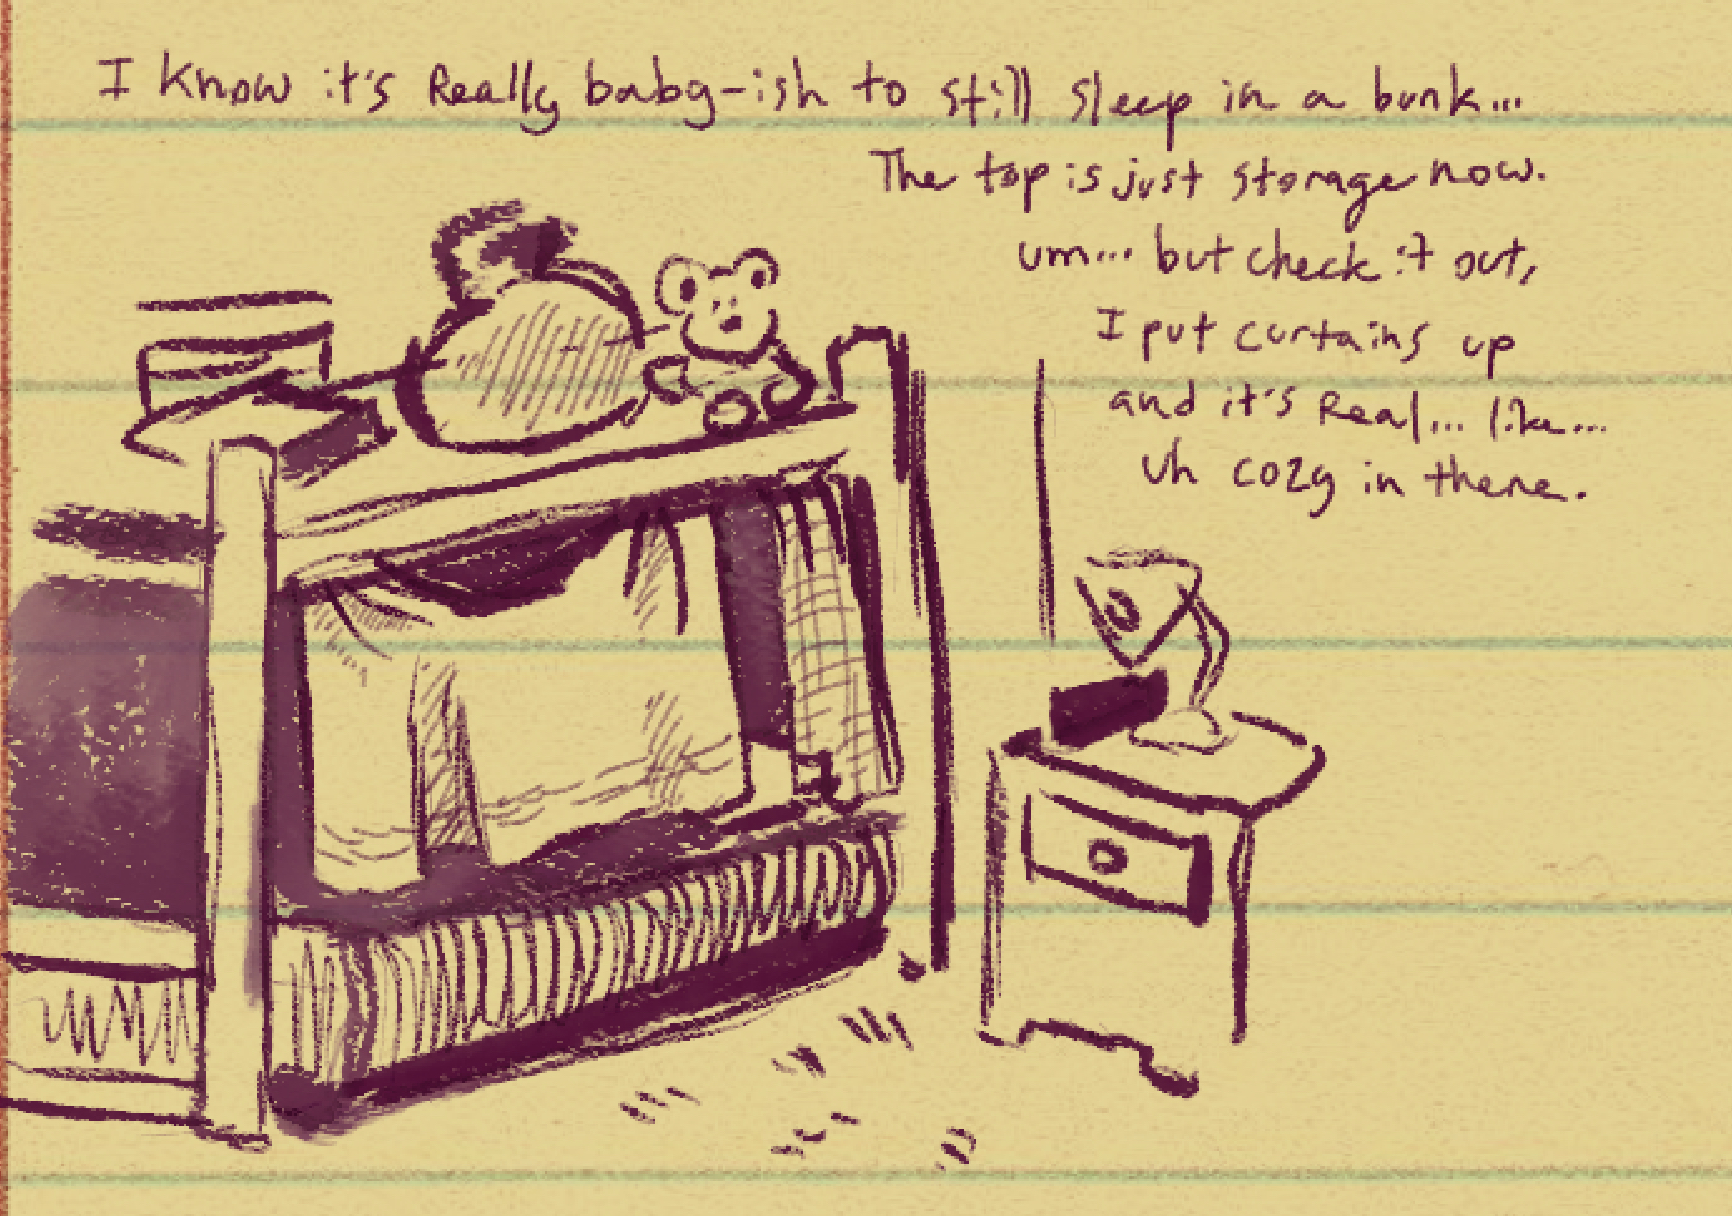 I know it's Really baby-ish to still sleep in a bunk...
The top is just storage now.
um... but check it out,
I put curtains up
and it's Real... like...
uh cozy in there.